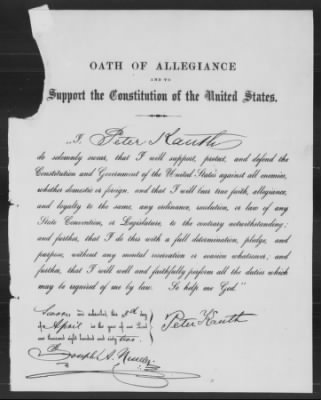 OATH OF ALLEGIANCE
AND TO
Support the Constitution of the United States.
"I, Peter Kauth
do solemnly swear, that I will support, protect, and defend the
Constitution and Government of the United States against all enemies,
whether domestic or foreign, and that I will bear true faith, allegiance,
and loyalty to the same, any ordinance, resolution, or law of any
State Convention, or Legislature, to the contrary notwithstanding;
and further, that I do this with a full determination, pledge, and
purpose, without any mental reservation or evasion whatsoever; and
further, that I will well and faithfully perform all the duties which
may be required of me by law. So help me God."
Sworn and subscribed this day
of April in the year of our Lord
one thousand eight hundred and sixty two.
Peter Kauth
Joseph A.